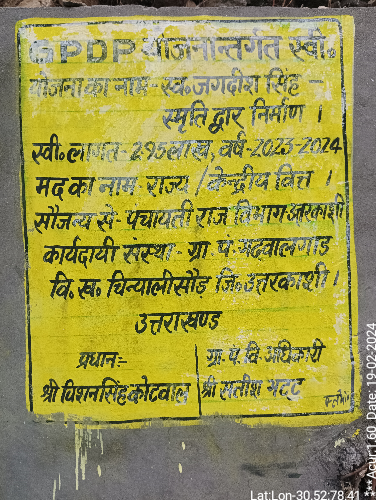 GPDP योजनान्तर्गत स्वी०
योजना का नाम - स्व. जगदीश सिंह -
स्मृति द्वार निर्माण ।
स्वी० लागत - 2.95 लाख, वर्ष - 2023-2024
मद का नाम - राज्य / केन्द्रीय वित्त ।
सौजन्य से - पंचायती राज विभाग उत्तरकाशी
कार्यदायी संस्था - ग्रा. पं. बढवालगांड
वि. ख. चिन्यालीसौड़ जि. उत्तरकाशी ।
उत्तराखण्ड
प्रधान :-
श्री विशन सिंह कोटवाल
ग्रा. पं. वि. अधिकारी
श्री सतीश भट्ट
Lat:Lon-30.52:78.41
Acur:1.60 Date: 19-02-2024